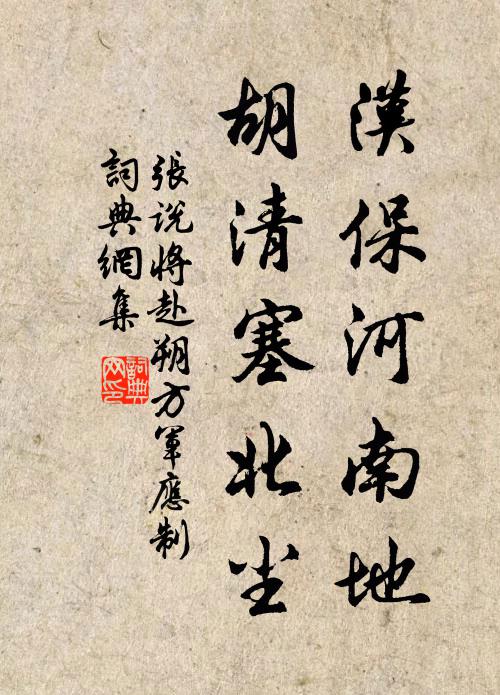 漢保河南地
胡清塞北尘
張说將赴朔方軍應制
詞典網集
詞典網印